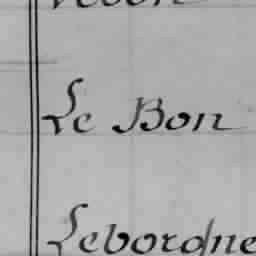 Le Bon
Leborgne